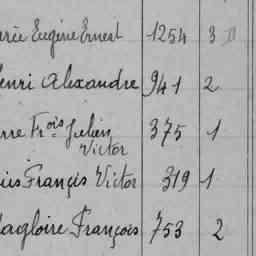 Eugène Ernest 1254 3
enri Alexandre 941 2
rre Frois Julien 375 1
Victor
uis François Victor 319 1
agloire François 753 2